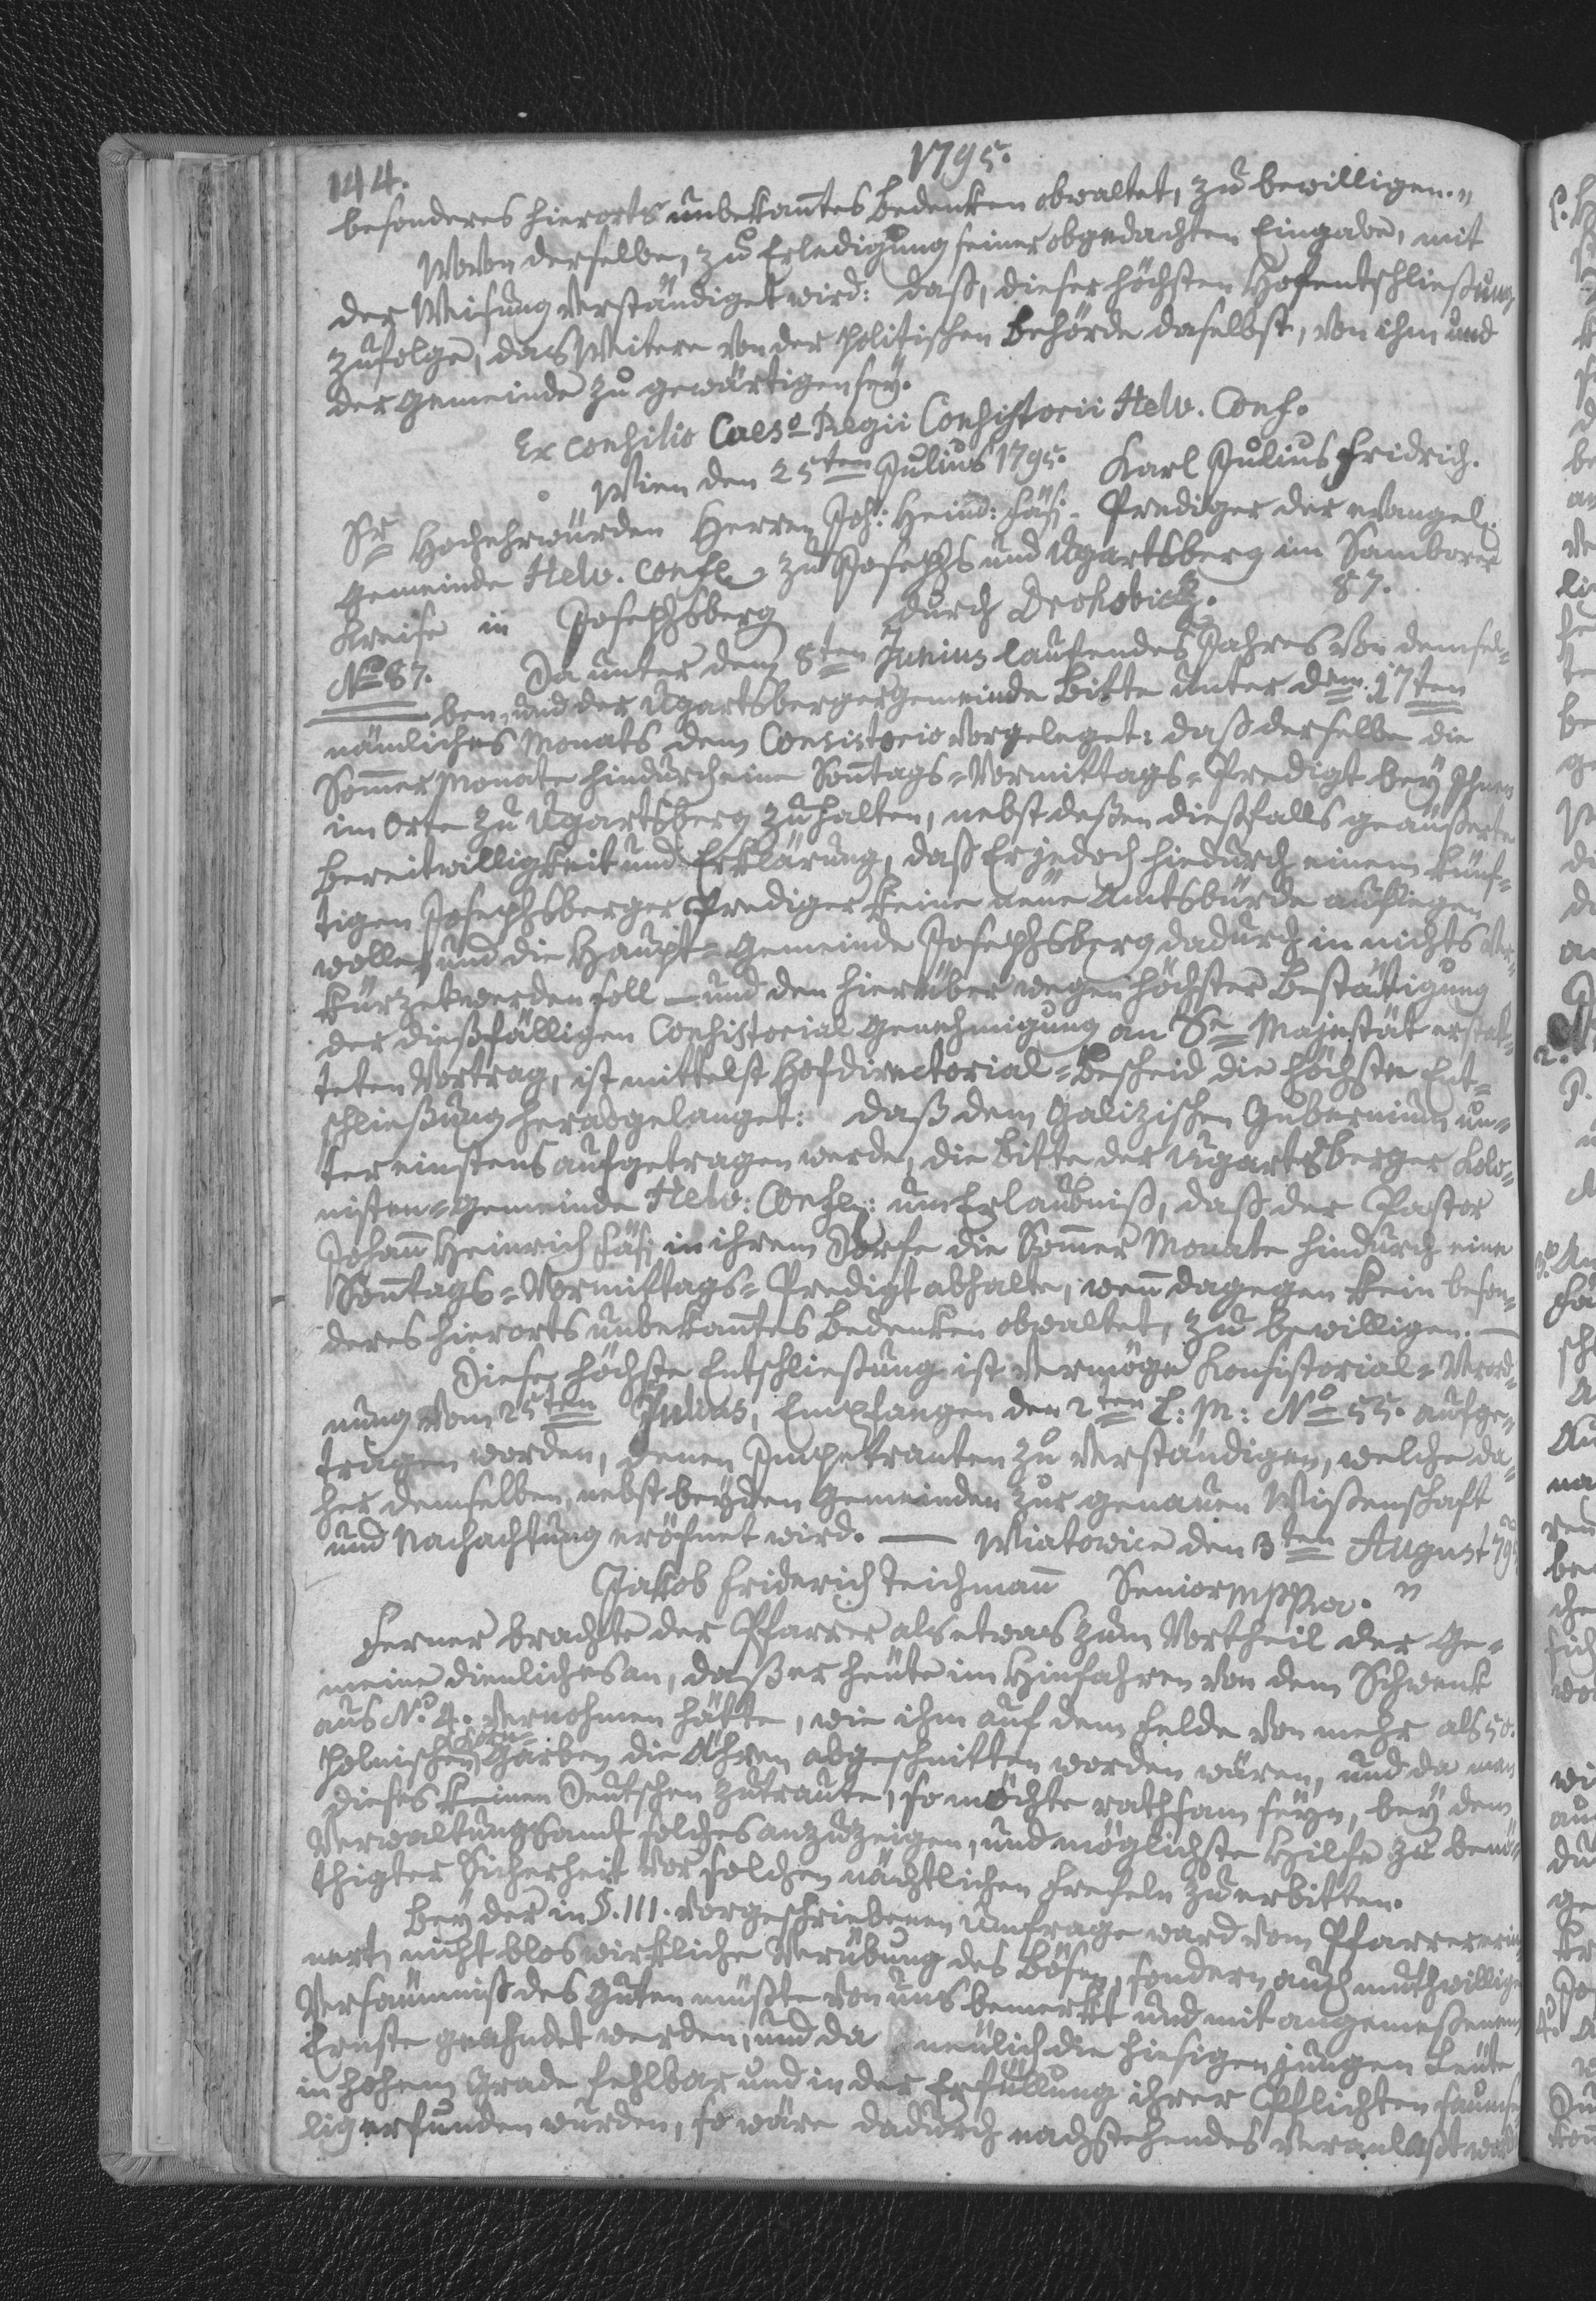 144.
1795.
besonderes hierorts unbekan̄tes Bedenken obwaltet, zu bewilligen."
Wovon derselbe, zu Erledigung seiner obgedachten Eingabe, mit
der Weisung verständiget wird: daß, dieser höchsten Hofentschließung
zufolge, das Weitere von der politischen Behörde daselbst, von ihm und
der Gemeinde zu gewärtigen sey.
Ex consilio Caeso Regii Consistorii Helv. Conf.
Wien den 25ten Julius 1795. Karl Julius Fridrich.
Sr Hochehrwürden Herren Joh: Heinr: Fäsi Prediger der evangel.
Gemeinde Helv. Confe zu Josephs und Ugartsberg im Samborer
Kreise in Josephsberg durch Drohobicz. 87.
No 87. Da unter dem 8ten Junius laufendes Jahres von demsel=
ben, und der Ugartsberger Gemeinde Bitte unter dem 17ten
nämliches Monats dem Consistorio vorgeleget: daß derselbe die
Som̄er Monate hindurch eine Son̄tags=Vormittags=Predigt bey Ihnen
im Orte zu Ugartsberg zu halten, nebst deßen dießfalls geäußerte
Bereitwilligkeit und Erklärung, daß Er jedoch hiedurch einem künf=
tigen Josephsberger Prediger keine neue Amtsbürde auflegen
wolle, und die Haupt=Gemeinde Josephsberg dadurch in nichts ver=
kürzet werden soll — und den hierüber wegen höchster Bestätigung
der dießfälligen Consistorial Genehmigung an Se Majestät erstat=
teten Vortrag, ist mittelst Hofdirectorial=Bescheid die höchste Ent=
schließung herabgelanget: daß dem Galizischen Gubernium un=
ter einstens aufgetragen werde, die Bitte der Ugartsberger Kolo=
nisten=Gemeinde Helv: Confe: um Erlaubniß, daß der Pastor
Johan̄ Heinrich Fäsi in ihrem Dorfe die Som̄er Monate hindurch eine
Son̄tags=Vormittags=Predigt abhalte, wen̄ dagegen kein beson=
deres hierorts unbekan̄tes Bedenken obwaltet, zu bewilligen. —
Diese höchste Entschließung ist vermöge Konsistorial=Verord=
nung vom 25ten Julius, Empfangen den 2ten l: M: No 55. aufge=
tragen worden, denen Impetranten zu verständigen, welche da=
her demselben, nebst beyden Gemeinden zur genauen Wißenschaft
und Nachachtung eröfnet wird. — Wiatowice den 3ten August 795
Jakob Friderich Teichman̄ Senior mppria. "
Ferner brachte der Pfarrer als etwas zum Vortheil der Ge=
meine dienliches an, daß er heute im Hinfahren von dem Schwenk
aus No. 4. vernohmen hätte, wie ihm auf dem Felde von mehr als 50.
Korn=
polnischen Garben die Ähren abgeschnitten worden wären, und da man
dieses keinen Deutschen zutraute, so möchte rathsam seyn, bey dem
Verwaltungsamt solches anzuzeigen, und möglichste Hilfe zu benö=
thigter Sicherheit vor solchen nächtlichen Frefeln zu erbitten.
Bey der in §. III. vorgeschriebenen Umfrage ward vom Pfarrer erin=
nert, nicht blos wirkliche Verübung des Bösen, sondern auch muthwillige
Versäumniß des Guten müßte von uns bemerkt und mit angemeßenem
Ernste geahndet werden, und da neulich die hiesigen jungen Leute
in hohem Grade fehlbar und in der Erfüllung ihrer Pflichten saumse=
lig erfunden wurden, so wäre dadurch nachstehendes veranlaßt